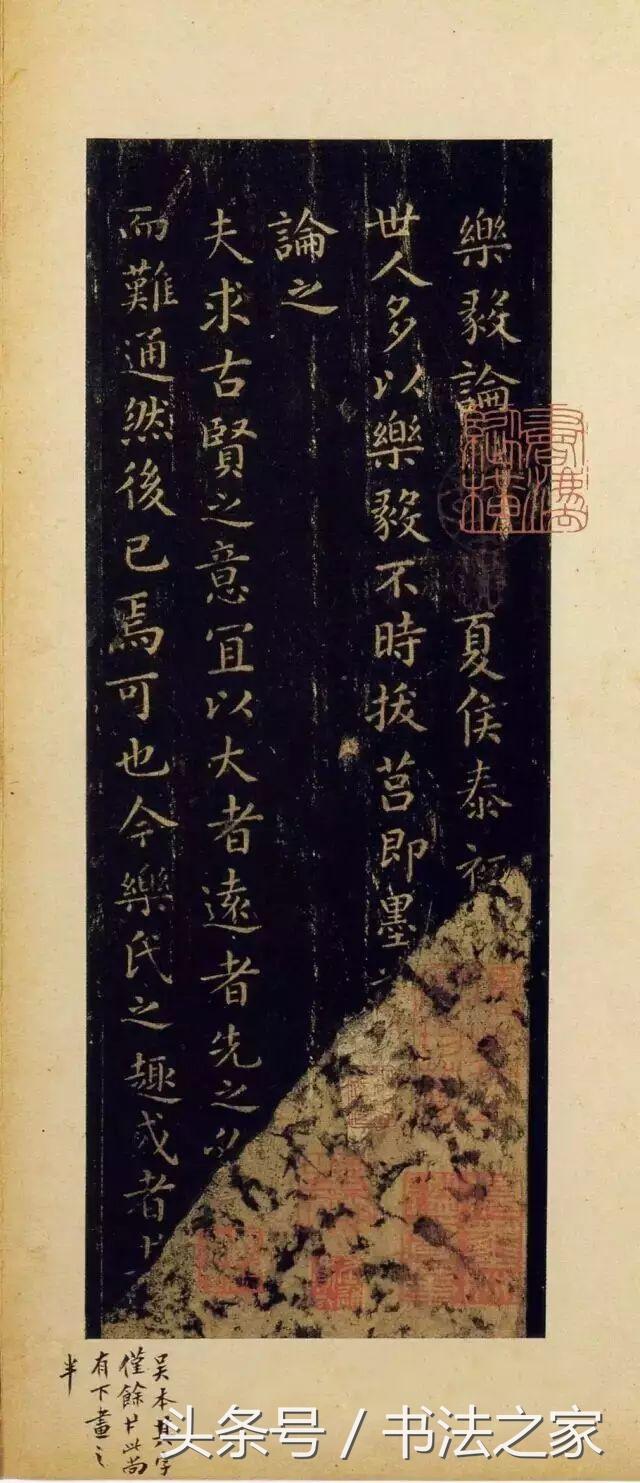 樂毅論
夏侯泰初
世人多以樂毅不時拔莒即墨
論之
夫求古賢之意宜以大者遠者先之
而難通然後已焉可也今樂氏之趣或者
吴本其字
僅餘此尚
有下畫之
半
头条号 / 书法之家